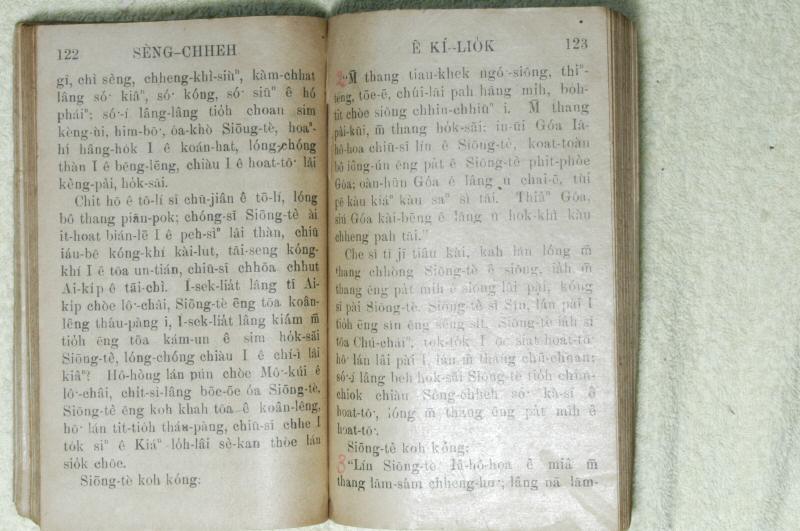 122 SÈNG-CHHEH
gī, chì sèng, chheng-khì-siūⁿ, kàm-chhat
lâng só͘ kiâⁿ, só͘ kóng, só͘ siūⁿ ê hó
pháiⁿ; só͘-í lâng-lâng tio̍h choan sim
kèng-ùi, him-bō͘, óa-khò Siōng-tè, hoaⁿ-
hí hâng-ho̍k I ê koán-hat, lóng-chóng
thàn I ê bēng-lēng, chiàu I ê hoat-tō͘ lâi
kèng-pài, ho̍k-sāi.
Chit hō ê tō-lí sī chū-jiân ê tō-lí, lóng
bô thang piān-pok; chóng-sī Siōng-tè ài
it-hoat bián-lē I ê peh-sìⁿ lâi thàn, chiū
iáu-bē kóng-khí kài-lu̍t, tāi-seng kóng-
khí I ê tōa un-tián, chiū-sī chhōa chhut
Ai-ki̍p ê tāi-chì. Í-sek-lia̍t lâng tī Ai-
ki̍p chòe lô͘-châi, Siōng-tè ēng tōa koân-
lêng tháu-pàng i, Í-sek-lia̍t lâng kiám m̄
tio̍h ēng tōa kám-un ê sim ho̍k-sāi
Siōng-tè, lóng-chóng chiàu I ê chí-ì lâi
kiâⁿ? Hô-hòng lán pún chòe Mô͘-kúi ê
lô͘-châi, chi̍t-sì-lâng bōe-ōe óa Siōng-tè,
Siōng-tè ēng koh khah tōa ê koân-lêng,
hō͘ lán tit-tio̍h tháu-pàng, chiū-sī chhe I
to̍k siⁿ ê Kiáⁿ lo̍h-lâi sè-kan thòe lán
sio̍k chōe.
Siōng-tè koh kóng:
Ê KÍ-LIO̍K 123
2 "M̄ thang tiau-khek ngó͘-siōng, thiⁿ-
téng, tōe-ē, chúi-lāi pah hāng mi̍h, bo̍h-
tit chòe siōng chhin-chhiūⁿ i. M̄ thang
pài-kūi, m̄ thang ho̍k-sāi: in-ūi Góa Iâ-
hô-hoa chiū-sī lín ê Siōng-tè, koat-toàn
bô iông-ún ēng pa̍t ê Siōng-tè phit-phòe
Góa; oàn-hūn Góa ê lâng ū chai-ē, tùi
pē kàu kiáⁿ kàu saⁿ sì tāi. Thiàⁿ Góa,
siú Góa kài-bēng ê lâng ū hok-khì kàu
chheng pah tāi."
Che sī tī jī tiâu kài, kah lán lóng m̄
thang chhòng Siōng-tè ê siōng, ia̍h m̄
thang ēng pa̍t mi̍h ê siōng lâi pài, kóng
sī pài Siōng-tè. Siōng-tè sī Sîn, lán pài I
tio̍h ēng sîn ēng sêng-si̍t. Siōng-tè ia̍h sī
tōa Chú-cháiⁿ, to̍k-to̍k I ōe siat hoat-tō͘
hō͘ lán lâi pài I, lán m̄ thang chū-choan;
só͘-í lâng beh ho̍k-sāi Siōng-tè tio̍h chûn-
chiok chiàu Sèng-chheh só͘ kà-sī ê
hoat-tō͘, lóng m̄ thang ēng pa̍t mi̍h ê
hoat-tō͘.
Siōng-tè koh kóng:
3 "Lín Siōng-tè Iâ-hô-hoa ê miâ m̄
thang lām-sám chheng-ho͘; lâng nā lām-